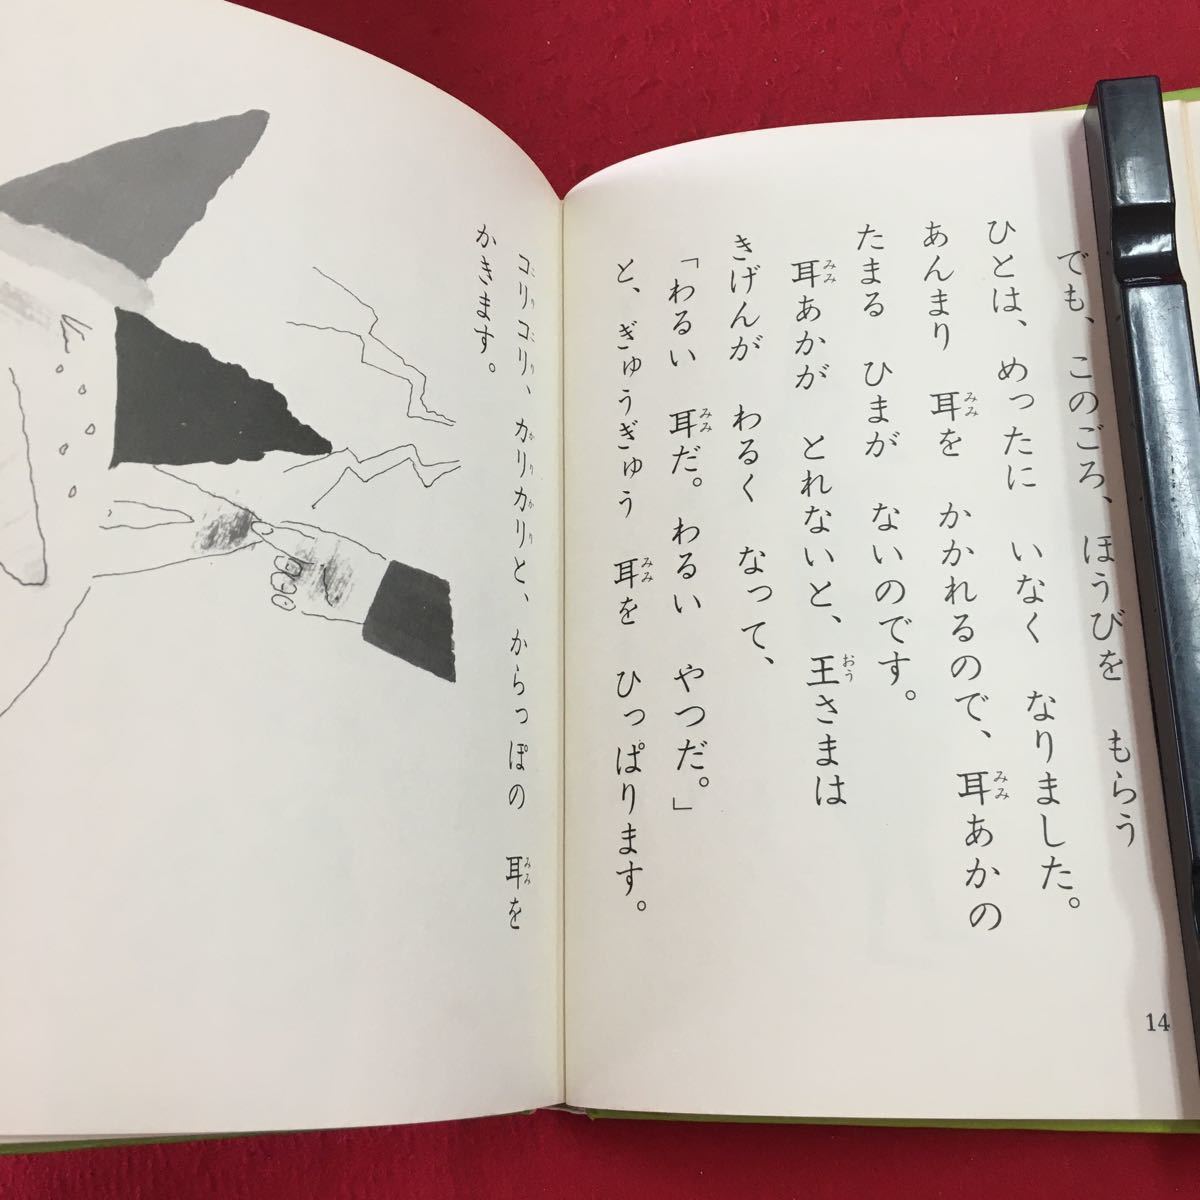 でも、このごろ、ほうびを　もらう
ひとは、めったに　いなく　なりました。
あんまり　耳を　かかれるので、耳あかの
たまる　ひまが　ないのです。
耳あかが　とれないと、王さまは
きげんが　わるく　なって、
「わるい　耳だ。わるい　やつだ。」
と、ぎゅうぎゅう　耳を　ひっぱります。
14
コリコリ、カリカリと、からっぽの　耳を
かきます。